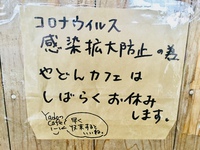 コロナウイルス
感染拡大防止の差
やどんカフェは
しばらくお休み
します。
Yadon
Cafe
早く
収束すると
いいね。